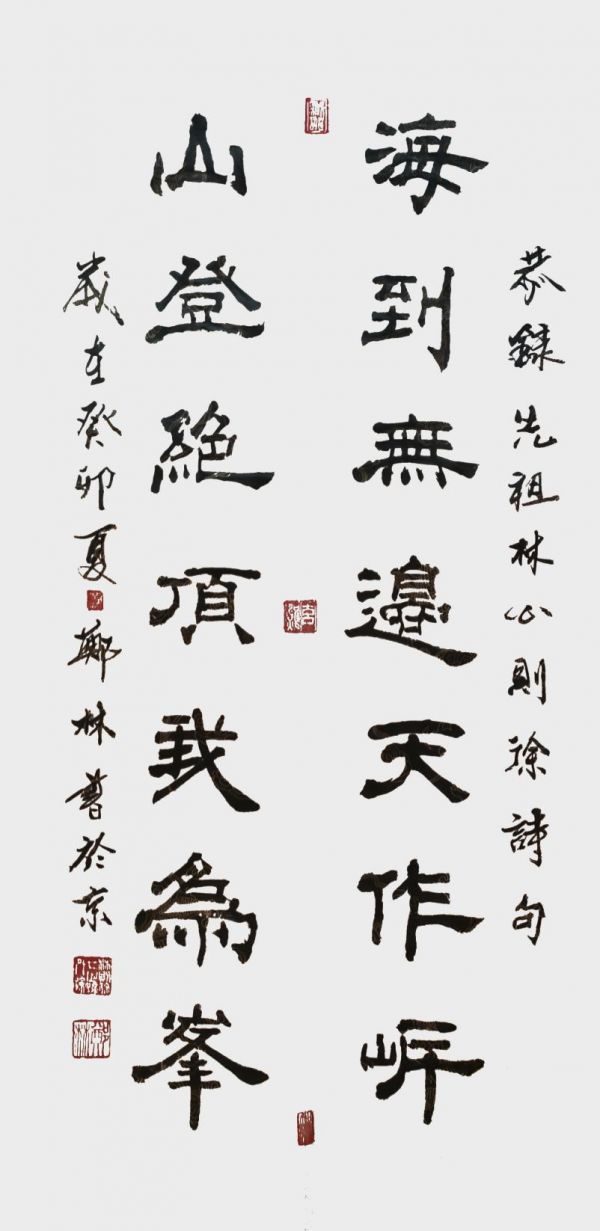 恭錄先祖林公則徐詩句
海到無邊天作岸
山登絕頂我為峯
歲在癸卯夏鄭林書於京